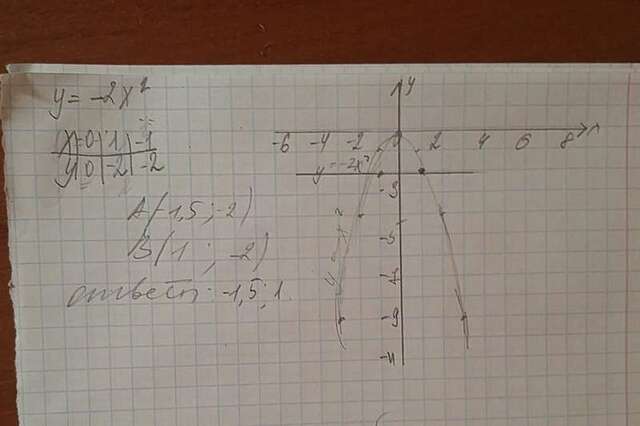 y = -2x²
x 0 1 -1
y 0 -2 -2
A(-1,5 ; -2)
B(1 ; -2)
ответ: -1,5; 1.
y
-6 -4 -2 0 2 4 6 8 x
y = -2x²
-3
y = -x²
-5
-7
-9
-11